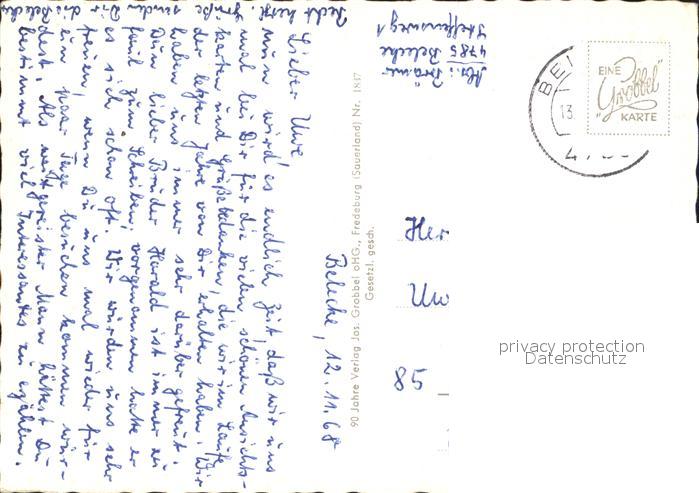 Belecke, 12.11.68
Lieber Uwe!
nun wird es endlich Zeit, daß wir uns
mal bei Dir für die vielen schönen Ansichts-
karten und Grüße bedanken, die wir im Laufe
der letzten Jahre von Dir erhalten haben. Wir
haben uns immer sehr darüber gefreut.
Dein lieber Bruder Harald ist immer zu
faul zum Schreiben, vorgenommen hatte er
es sich schon oft. Wir würden uns sehr
freuen, wenn Du uns mal wieder für
ein paar Tage besuchen kommen wür-
dest. Als weitgereister Mann hättest Du
bestimmt viel Interessantes zu erzählen.
Recht herzl. Grüße senden Dir die Belecker
Abs.: Brämer
4785 Belecke
Steffensweg 1
90 Jahre Verlag Jos. Grobbel oHG., Fredeburg (Sauerland) Nr. 1847
Gesetzl. gesch.
EINE
"Grobbel"
KARTE
BE
13.
Her
Uw
85
privacy protection
Datenschutz